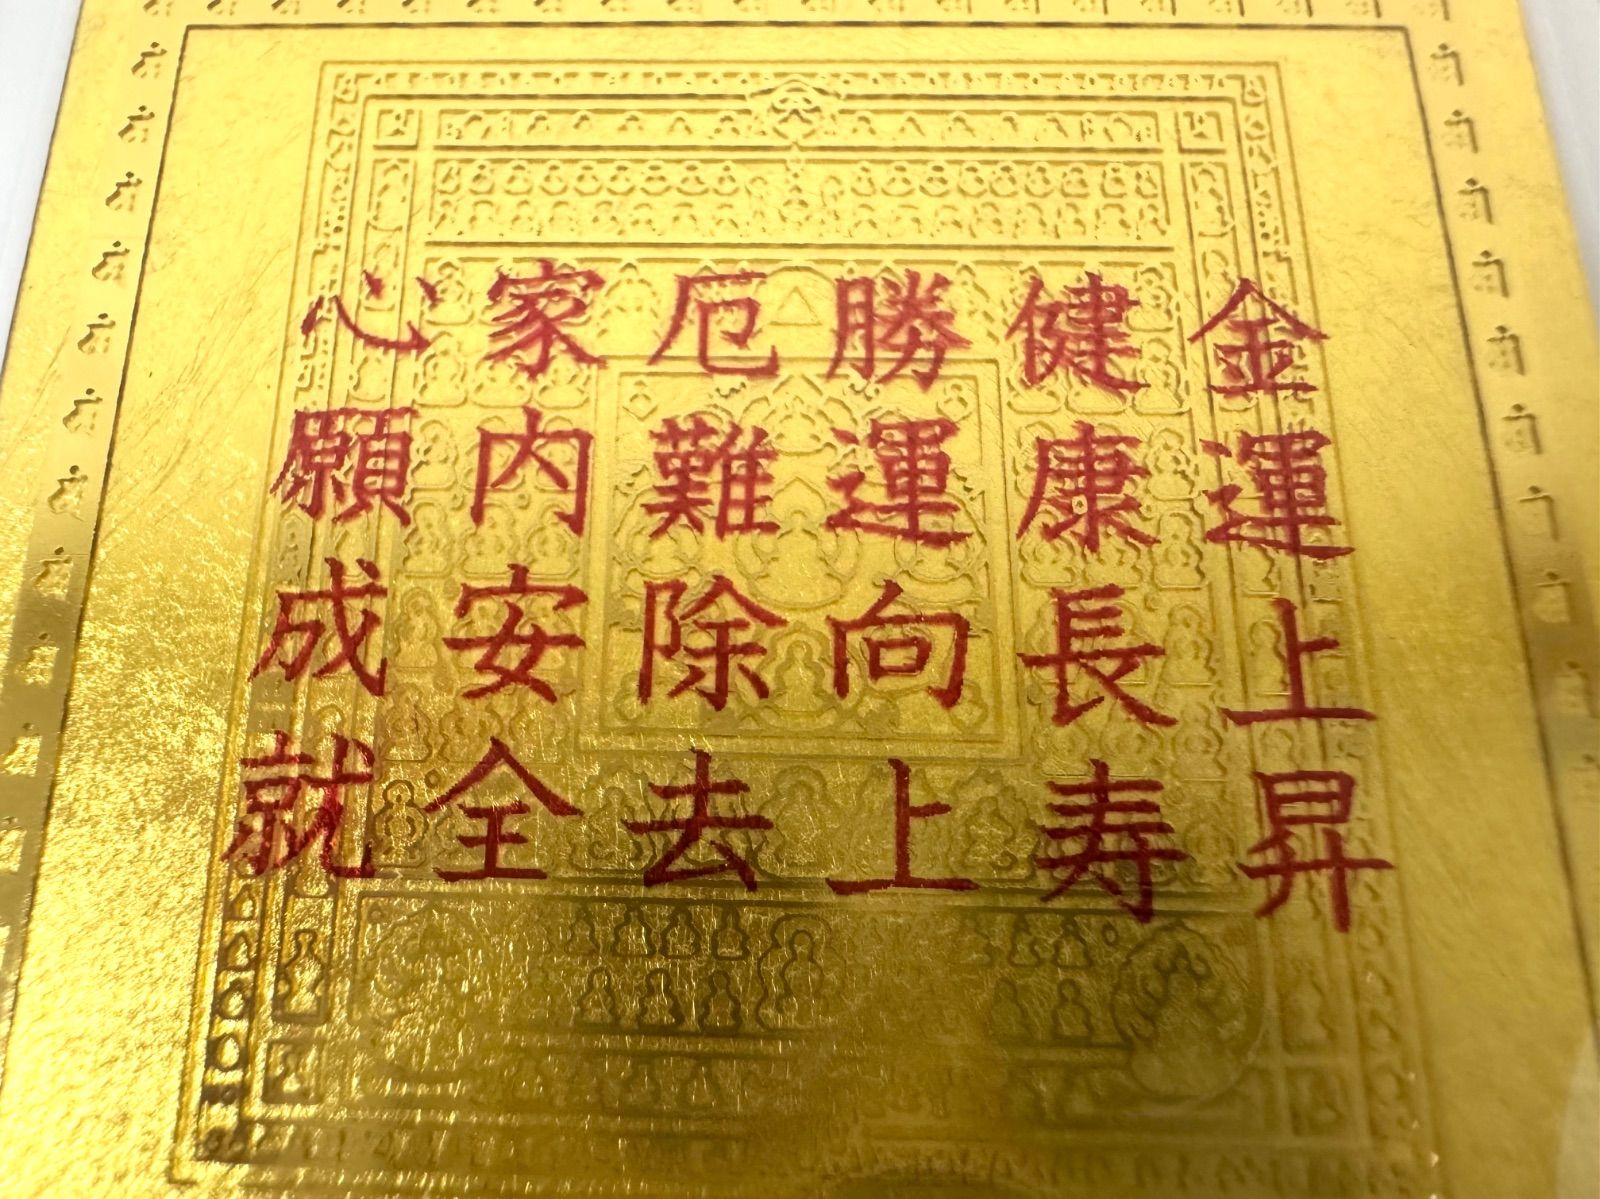 金運上昇
健康長寿
勝運向上
厄難除去
家内安全
心願成就